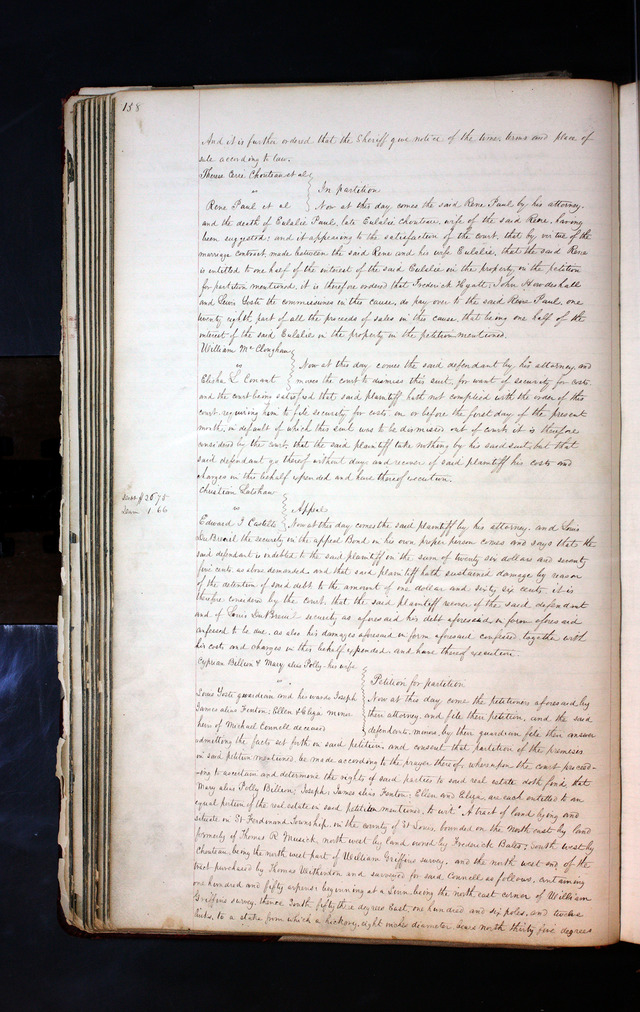 138
And it is further ordered that the Sheriff give notice of the time, terms and place of
sale according to law.
Therese Cerre Chouteau et al
vs } In partition
Rene Paul et al } Now at this day comes the said Rene Paul by his attorney.
and the death of Eulalie Paul, late Eulalie Chouteau, wife of the said Rene, having
been suggested; and it appearing to the satisfaction of the court, that by virtue of the
marriage contract made between the said Rene and his wife Eulalie, that the said Rene
is entitled to one half of the interest of the said Eulalie in the property, in the petition
for partition mentioned, it is therefore ordered that Frederick Hyatt, John
and Levis Yosti the commissioners in this cause, do pay over to the said Rene Paul, one
twenty eighth part of all the proceeds of sales in the cause, that being one half of the
interest of the said Eulalie in the property in the petition mentioned.
William Mc
vs } Now at this day comes the said defendant by his attorney, and
Elisha L. Conant } moves the court to dismiss this suit, for want of security for costs
and the court being satisfied that said plaintiff hath not complied with the order of this
court, requiring him to file security for costs, on or before the first day of the present
month, in default of which this suit was to be dismissed out of court; it is therefore
considered by the court, that the said plaintiff take nothing by his said suit, but that
said defendant go thereof without day, and recover of said plaintiff his costs and
charges in this behalf expended and have thereof execution.
Christian
$26 75
Dam 1.66
vs } Appeal
Edward J Castello } Now at this day comes the said plaintiff by his attorney, and Louis
DuBreuil the security in the appeal Bond in his own proper person comes and says that the
said defendant is indebted to the said plaintiff in the sum of twenty six dollars and seventy
five cents, as above demanded, and that said plaintiff hath sustained damage by reason
of the detention of said debt to the amount of one dollar and sixty six cents, it is
therefore considered by the court, that the said plaintiff recover of the said defendant
and of Louis DuBreuil security as aforesaid his debt aforesaid in form aforesaid
confessed to be due, as also his damages aforesaid in form aforesaid confessed together with
his costs and charges in this behalf expended and have thereof execution.
Cyprian Billeau & Mary, alias Polly his wife
vs } Petition for partition
Louis Yosti guardian and his wards Joseph } Now at this day come the petitioners aforesaid by
James alias Fenton; Ellen & Eliza minor } their attorney, and file their petition, and the said
heirs of Michael Connell deceased } defendants, minors, by their guardian file their answer
admitting the facts set forth in said petition, and consent that partition of the premises
in said petition mentioned, be made according to the prayer thereof; whereupon the court proceed-
-ing to ascertain and determine the rights of said parties to said real estate doth find, that
Mary alias Polly Billeau; Joseph; James alias Fenton; Ellen and Eliza, are each entitled to an
equal portion of the real estate in said petition mentioned, to wit: "A tract of land lying and
situate in St Ferdinand Township, in the county of St Louis, bounded on the North east by land
formerly of Thomas R Musick, north west by land owned by Frederick Bates; South west by
Chouteau, being the north west part of William Griffins survey, and the north west end of the
tract purchased by Thomas and surveyed for said Connell as follows, containing
one hundred and fifty arpens: beginning at a being the north east corner of William
Griffins survey, thence South fifty three degrees East, one hundred and six poles, and twelve
links, to a stake from which a hickory, eight inches diameter, bears north thirty five degrees